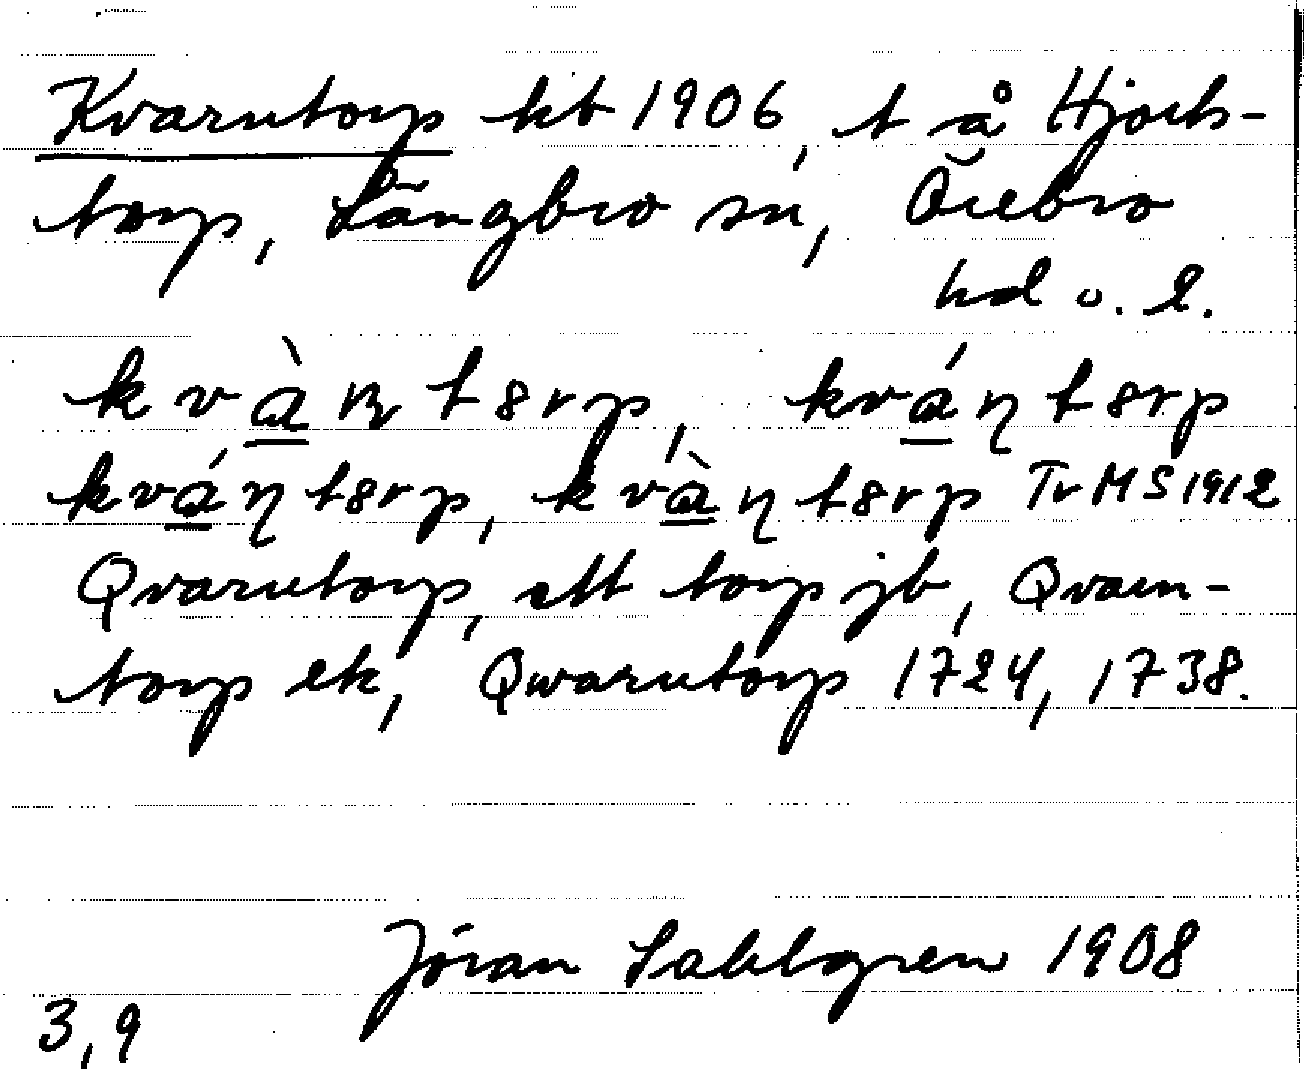 Kvarntorp kb 1906, t å Hjorts-
torp, Längbro sn, Örebro
hd o. l.
kvàɳt8rp, kváɳt8rp
kváɳt8rp, kvàɳt8rp Tv MS 1912
Qvarntorp, ett torp jb, Qvarn-
torp ek, Qwarntorp 1724, 1738.
Jöran Sahlgren 1908
3,9